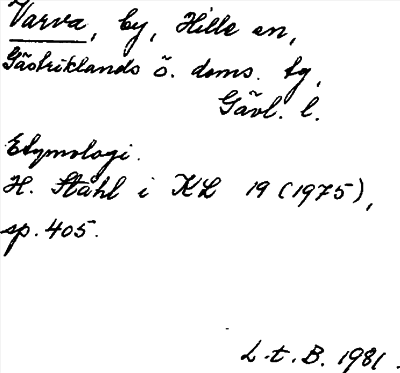 Varva, by, Hille sn,
Gästriklands ö. doms. tg,
Gävl. l.
Etymologi.
H. Ståhl i KL 19 (1975),
sp. 405.
L.t.B. 1981.